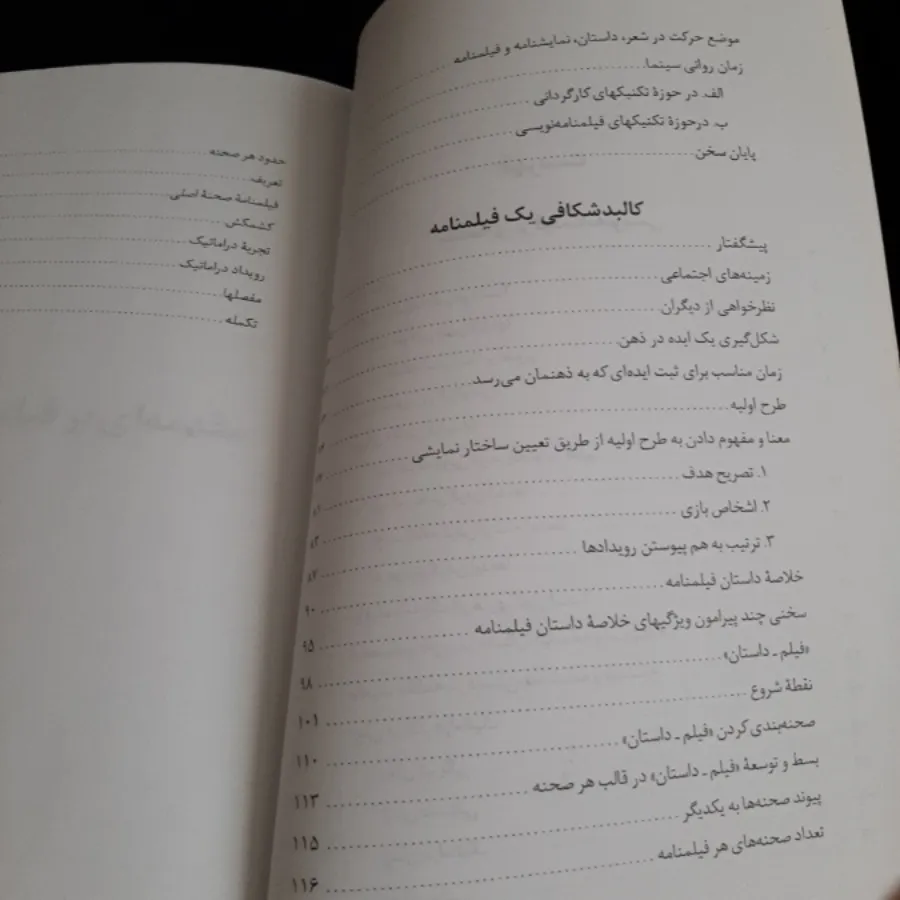 موضع حرکت در شعر، داستان، نمایشنامه و فیلمنامه
زمان روانی سینما
الف. در حوزهٔ تکنیکهای کارگردانی
ب. درحوزهٔ تکنیکهای فیلمنامه‌نویسی
پایان سخن
کالبدشکافی یک فیلمنامه
پیشگفتار
زمینه‌های اجتماعی
نظرخواهی از دیگران
شکل‌گیری یک ایده در ذهن
زمان مناسب برای ثبت ایده‌ای که به ذهنمان می‌رسد
طرح اولیه
معنا و مفهوم دادن به طرح اولیه از طریق تعیین ساختار نمایشی
۱. تصریح هدف
۲. اشخاص بازی
۳. ترتیب به هم پیوستن رویدادها
خلاصهٔ داستان فیلمنامه ۹۰
سخنی چند پیرامون ویژگیهای خلاصهٔ داستان فیلمنامه ۹۵
«فیلم ـ داستان» ۹۸
نقطهٔ شروع ۱۰۱
صحنه‌بندی کردن «فیلم ـ داستان» ۱۱۰
بسط و توسعهٔ «فیلم ـ داستان» در قالب هر صحنه ۱۱۳
پیوند صحنه‌ها به یکدیگر ۱۱۵
تعداد صحنه‌های هر فیلمنامه ۱۱۶
حدود هر صحنه
تعریف
فیلمنامهٔ صحنهٔ اصلی
کشمکش
تجربهٔ دراماتیک
رویداد دراماتیک
مفصلها
تکمله